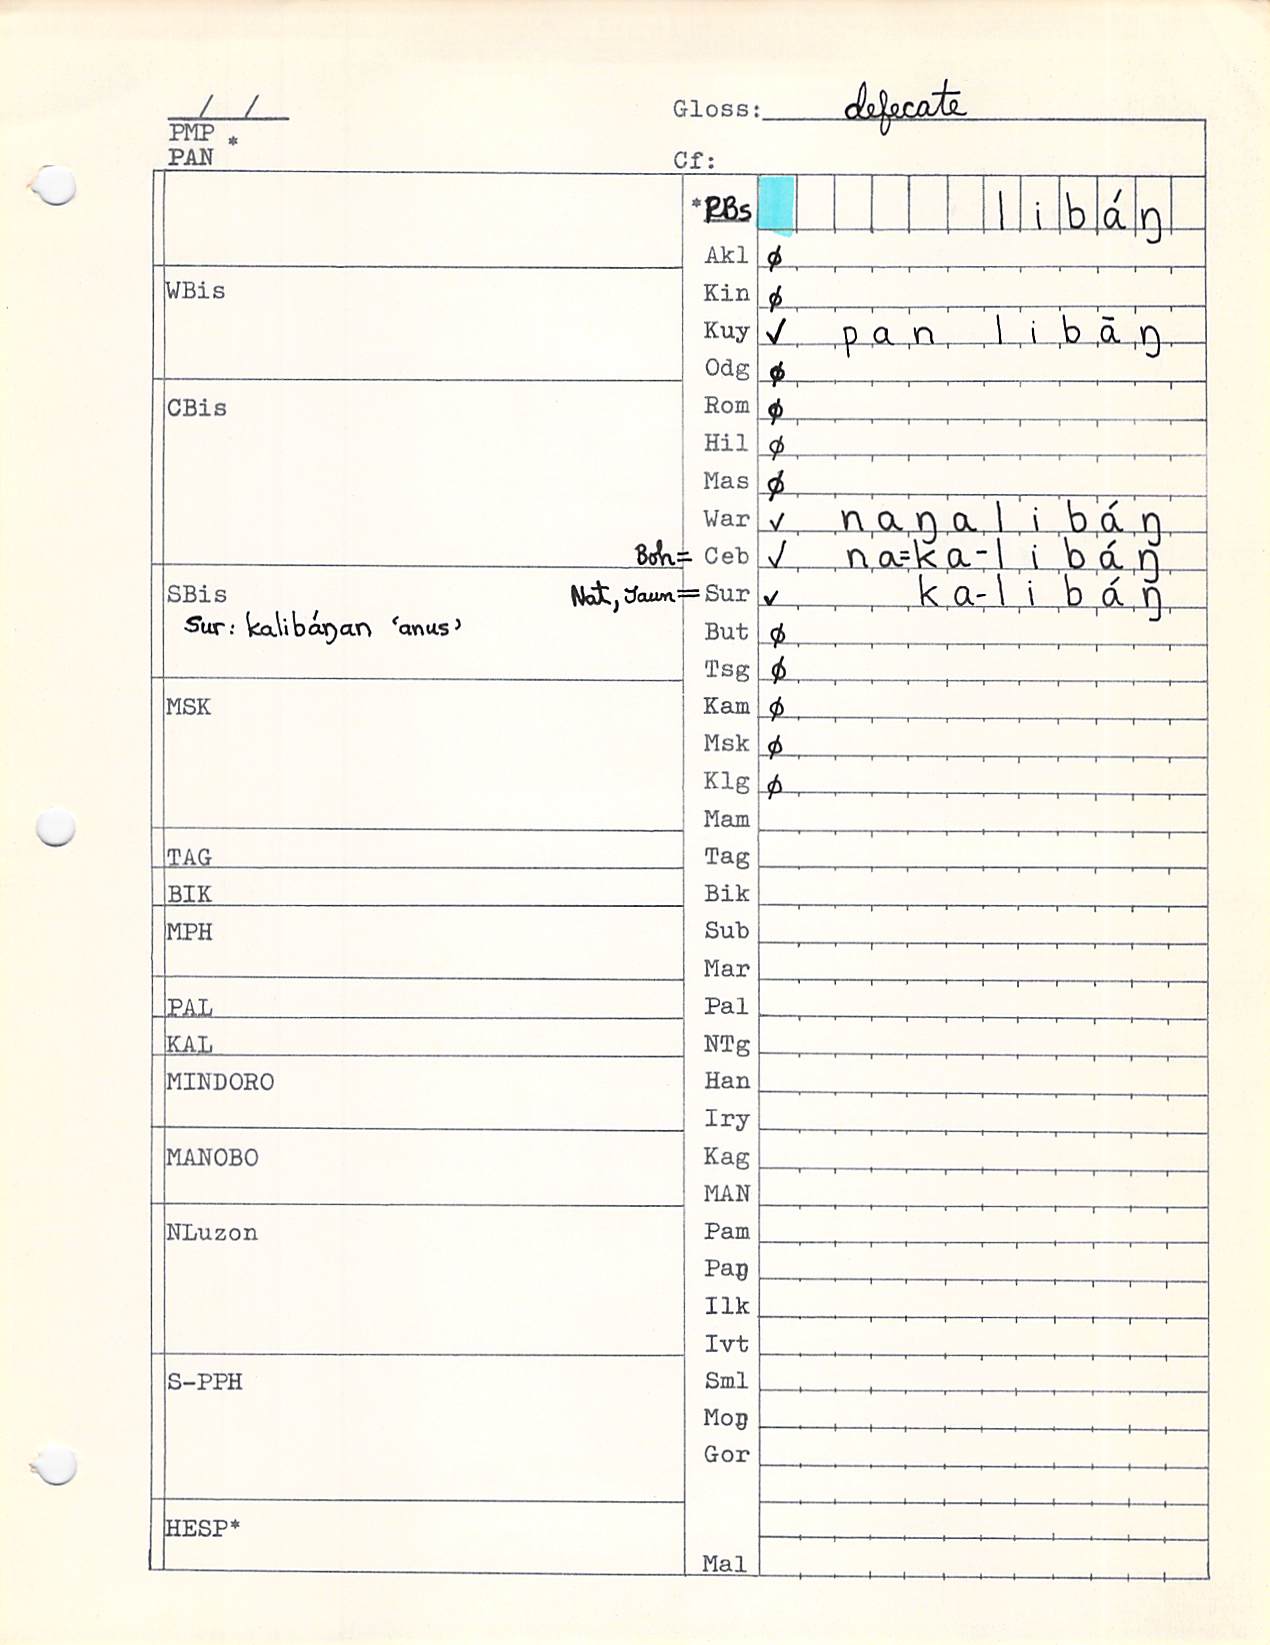 / /
Gloss: defecate
PMP *
PAN
Cf:
*PBs libáŋ
Akl ∅
WBis
Kin ∅
Kuy ✓ pan libāŋ
Odg ∅
CBis
Rom ∅
Hil ∅
Mas ∅
War ✓ naŋalibáŋ
Boh= Ceb ✓ na=ka-libáŋ
SBis
Nat, Jaun= Sur ✓ ka-libáŋ
Sur: kalibáŋan ‘anus’
But ∅
Tsg ∅
MSK
Kam ∅
Msk ∅
Klg ∅
Mam
TAG
Tag
BIK
Bik
MPH
Sub
Mar
PAL
Pal
KAL
NTg
MINDORO
Han
Iry
MANOBO
Kag
MAN
NLuzon
Pam
Paŋ
Ilk
Ivt
S-PPH
Sml
Moŋ
Gor
HESP*
Mal